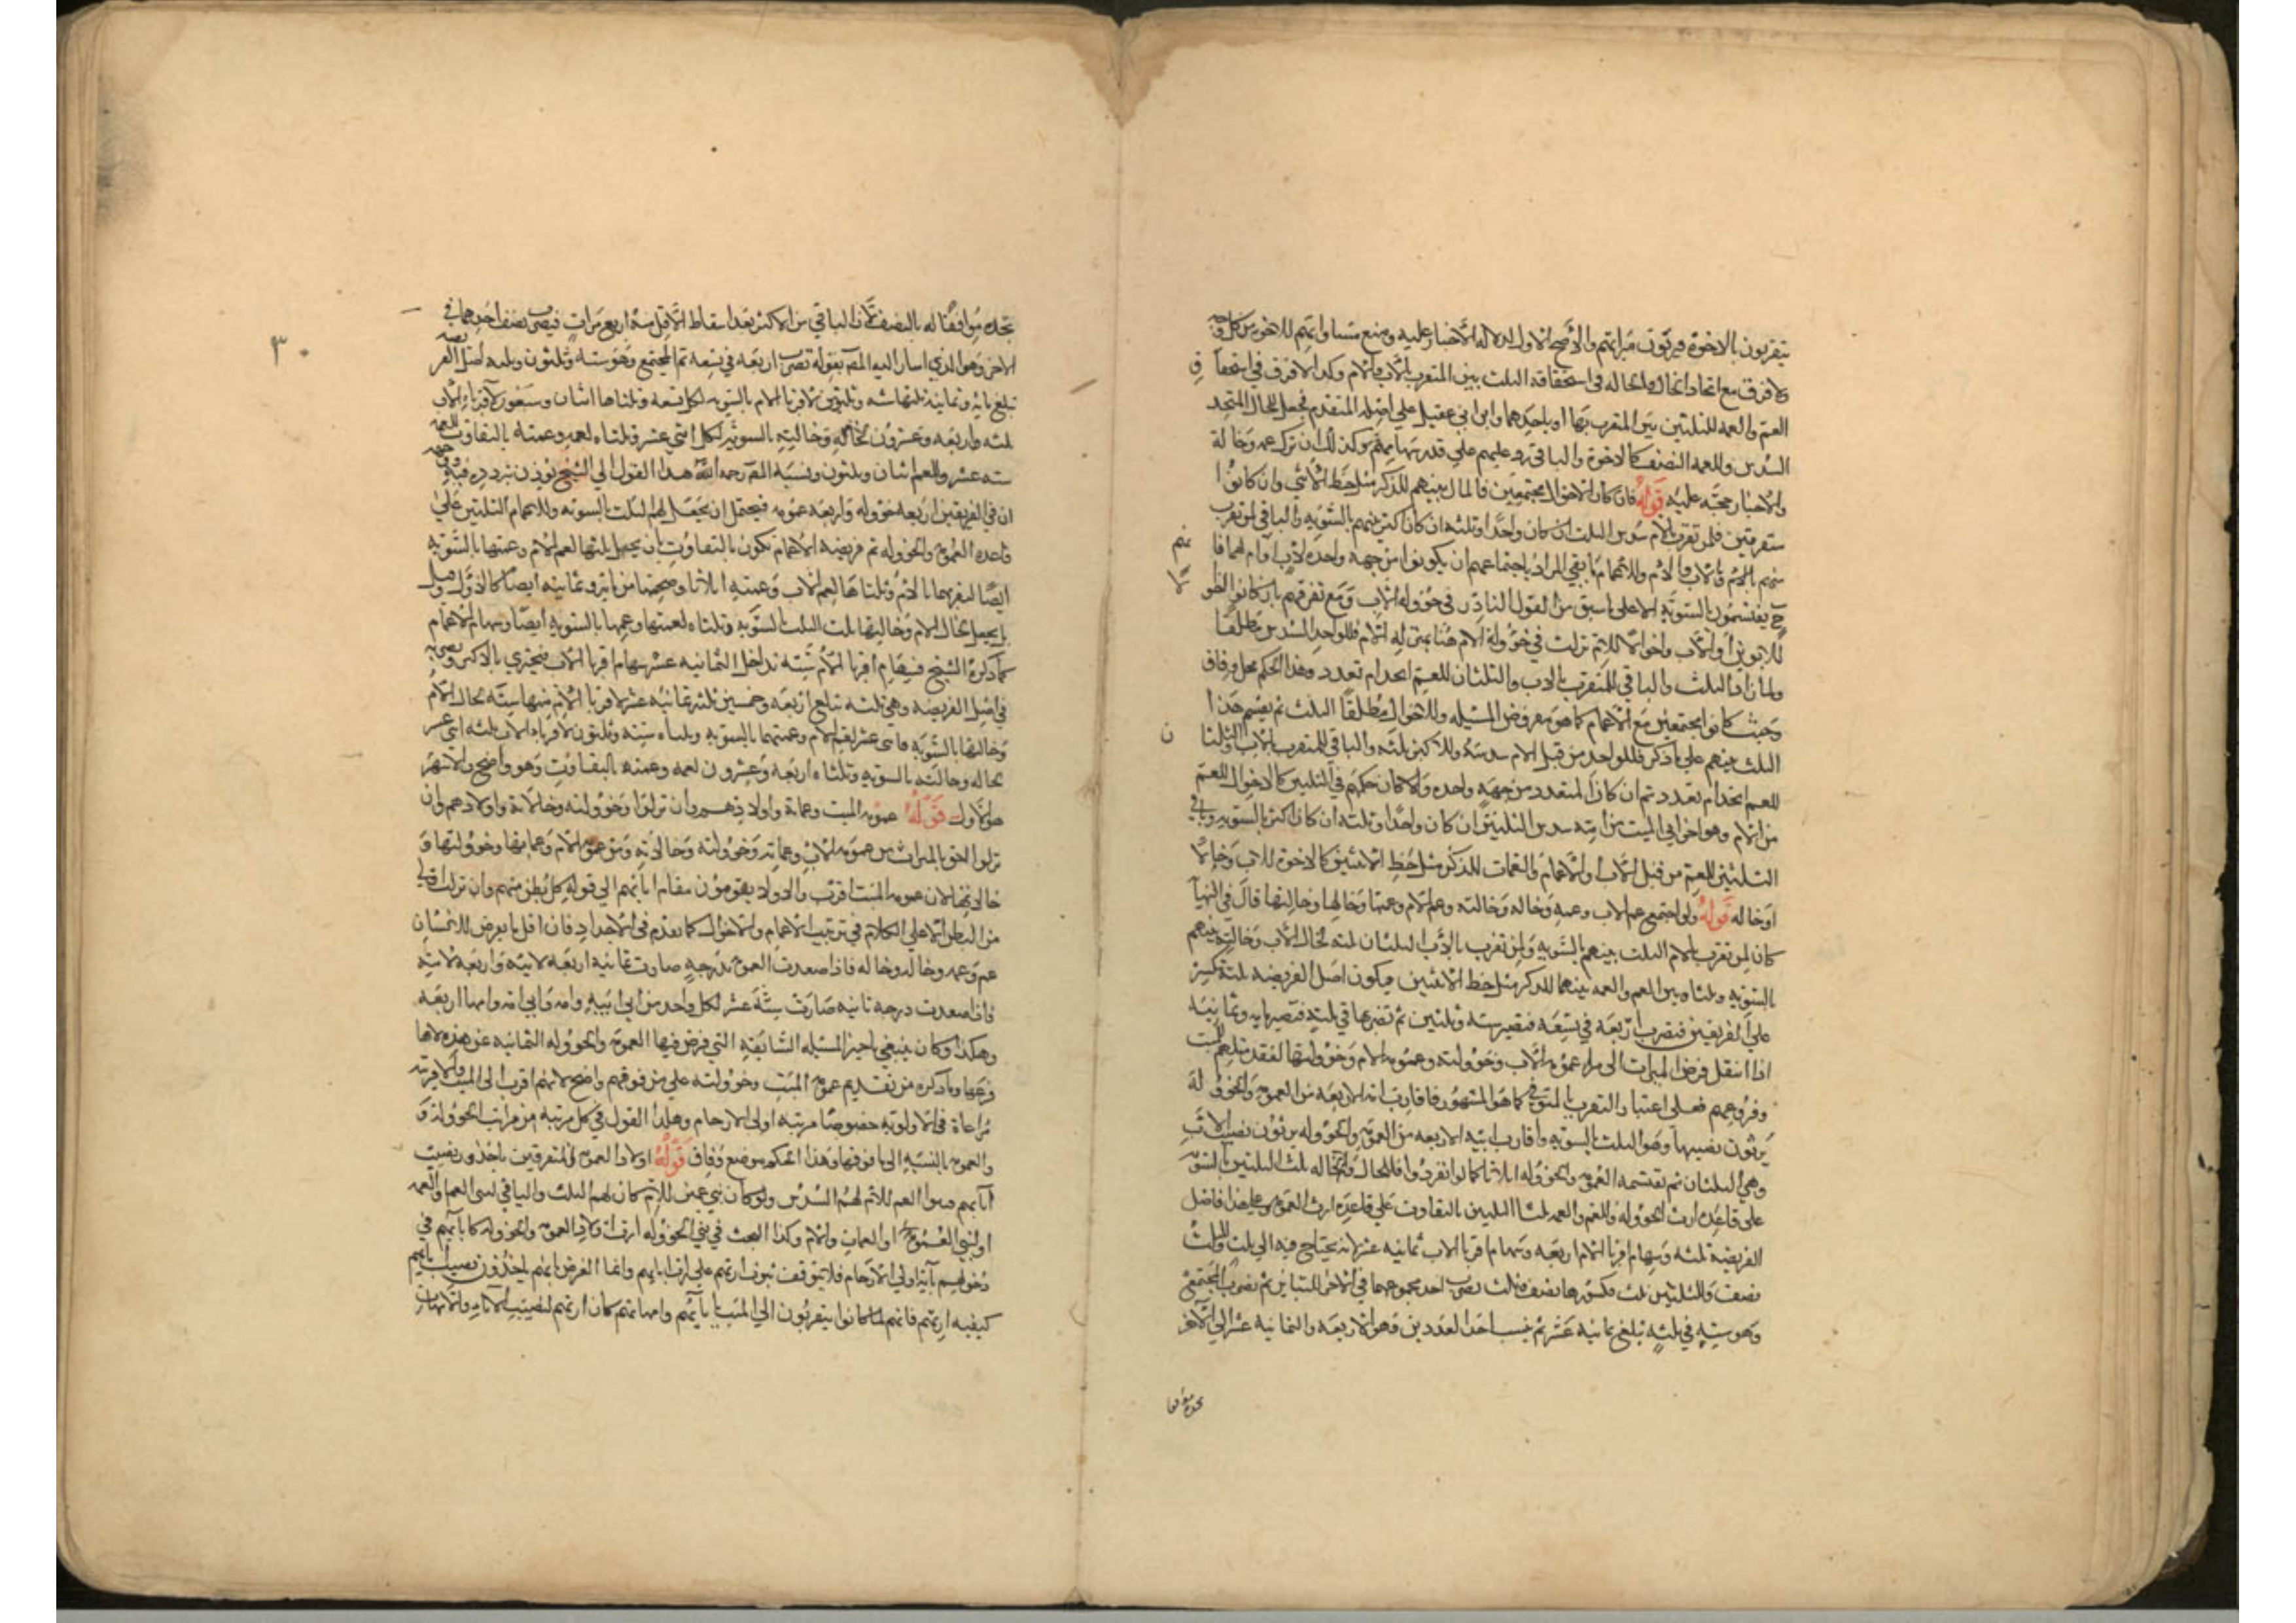 يتقربون بالاخوة فيرثون ميراثهم والأصح الاول لدلالة الأخبار عليه ومنع مساواتهم للاخوة من كل وجه
ولا فرق مع اتحاد الخال والخاله في استحقاقه الثلث بين المتقرب بالأب والام وكذا لا فرق في استحقا ق
العم والعمه للثلثين بين المتقرب بهما او باحدهما وابن ابي عقيل على اصله المتقدم فجعل للخال المتحد
السدس وللعمه النصف كالاخوة والباقي رد عليهم على قدر سهامهم وكذلك ان ترك عمه وخالة
والاخبار حجة عليه قوله فان كان الاخوال مجتمعين فالمال بينهم للذكر مثل حظ الأنثى وان كانوا
متفرقين فلمن تقرب بالام سدس الثلث ان كان واحدا وثلثه ان كان اكثر بينهم بالسويه والباقي لمن تقرب
منهم بالام والاب والام وللاعمام ما بقي المراد باجتماعهم ان يكونوا من جهه واحدة لاب او ام لهما فا نهم
ح يقتسمون بالسويه الا على ما سبق من القول النادر في خؤوله الاب ومع تفرقهم بان كانوا اخو الا
للابوين او للاب واخوالا للام نزلت في خؤولة الام هنا بمنزله الام فللواحد السدس مطلقا
ولما زاد الثلث والباقي للمتقرب بالاب والثلثان للعم اتحد ام تعدد وهذا الحكم محل وفاق
وحيث كانوا مجتمعين مع الاعمام كما هو مفروض المسئله وللاخوال مطلقا الثلث ثم يقسم هذا
الثلث بينهم على ما ذكر فللواحد من قبل الام سدسه وللاكثر ثلثه والباقي للمتقرب بالاب والثلثا ن
للعم اتحد ام تعدد ثم ان كان المتعدد من جهة واحده والا كان حكمهم في الثلثين كالاخوال للعم
من الام وهو اخو ابي الميت من امه سدس الثلثين ان كان واحدا وثلثه ان كان اكثر بالسويه وباقي
الثلثين للعم من قبل الاب والاعمام والعمات للذكر مثل حظ الانثيين كالاخوة للاب وخالا
او خاله قوله ولو اجتمع عم الاب وعمته وخاله وخالته وعم الام وعمتها وخالها وخالتها قال في النهاية
كان لمن تقرب بالام الثلث بينهم بالسويه ولمن تقرب بالأب الثلثان ثلثه لخال الأب وخالته بينهم
بالسويه وثلثاه بين العم والعمه بينهما للذكر مثل حظ الانثيين فيكون اصل الفريضه ثلثة تكسر
على الفريقين فتضرب أربعة في تسعه فتصير ستة وثلثين ثم تضربها في ثلثه فتصير مايه وثمانيه
اذا انتقل فرض الميراث الى مراء عمومه الاب وخؤولته وعمومه الام وخؤولتها لفقد مثلهم للميت
وفروعهم فعلى اعتبار التقرب بالمتوفى كما هو المشهور فاقارب امه الاربعه من العمومه والخؤو له
يرثون نصيبها وهو الثلث بالسويه واقارب ابيه الاربعه من العمومه والخؤوله يرثون نصيب الاب
وهي الثلثان ثم تقتسمه العمومه والخؤوله اثلاثا كما لو انفردوا فللخال والخاله ثلث الثلثين بالسويه
على قاعدة ارث الخؤوله وللعم والعمه ثلثا الثلثين بالتفاوت على قاعدة ارث العمومه وعلى هذا فاصل
الفريضة ثلثه وسهام اقربا الام اربعه وسهام اقربا الاب ثمانيه عشر لانه يحتاج فيه الى ثلث وللثلث
نصف وللثلثين ثلث فكسورها نصف وثلث يضرب احد مخرجهما في الاخر للتباين ثم يضرب المجتمع
وهو سته في ثلثه تبلغ ثمانيه عشر ثم ينسب احد العددين وهو الاربعه والثمانيه عشر الى الاخر
تجده موافقا
تجده موافقا له بالنصف لأن الباقي من الاكثر بعد اسقاط الاقل منه اربع مرات فيضرب نصف احدهما في
الاخر وهو الذي اشار اليه المصنف بقوله تضرب اربعه في تسعه ثم المجتمع وهو سته وثلثون وثلثه اصل الفريضه
تبلغ مايه وثمانية ثلثها سته وثلثون لاقربا الام بالسويه لكل تسعه وثلثاها اثنان وسبعون لاقرباء الاب
ثلثه واربعه وعشرون لخاله وخالته بالسويه لكل اثني عشر وثلثاه لعمه وعمته بالتفاوت للعمه
سته عشر وللعم اثنان وثلثون ونسبة المصنف رحمه الله هذا القول الي الشيخ يؤذن بتردده فيه
ان في الفريقين اربعه خؤوله واربعه عمومه فيحتمل ان يجعل لهم الثلث بالسويه وللاعمام الثلثين على
قاعده العمومه والخؤوله ثم فريضه الاعمام تكون بالتفاوت بان يجعل ثلثها لعم الام وعمتها بالسويه
ايضا لتقربهما بالام وثلثاها لعم الاب وعمته اثلاثا وصحتها من مايه وثمانيه ايضا كالاول وقيل
بان يجعل لخال الام وخالتها ثلث الثلث بالسويه وثلثاه لعمتها وعمها بالسويه ايضا وسهام الاعمام
كما ذكره الشيخ فسهام اقربا الام سته تداخل الثمانيه عشر سهام اقربا الاب فيجتزي بالاكثر ويضربه
في اصل الفريضه وهي ثلثه تبلغ اربعه وخمسين ثلثه ثمانيه عشر لاقربا الام منها سته لخال الام
وخالتها بالسويه واثنى عشر لعم الام وعمتها بالسويه وثلثاه سته وثلثون لاقرباء الاب ثلثه اثنى عشر
لخاله وخالته بالسويه وثلثاه اربعه وعشرون لعمه وعمته بالتفاوت وهو واضح والاشهر
هو الأول قوله عمومه الميت وعماته واولادهم وان نزلوا وخؤولته وخالاته واولادهم وان
نزلوا احق بالميراث من عمومه الاب وعماته وخؤولته وخالاته ومن عمومه الام وعماتها وخؤولتها و
خالاتها لان عمومه الميت اقرب والاولاد يقومون مقام ابائهم الى قوله كل بطن منهم وان نزلت اولى
من البطن الاعلى الكلام في ترتيب الاعمام والاخوال كما تقدم في الاجداد فان اقل ما يعرض للانسان
عم وعمه وخال وخاله فاذا صعدت العمومه بدرجه صارت ثمانيه اربعه لابيه واربعه لامه
فاذا صعدت درجه ثانيه صارت ستة عشر لكل واحد من ابي ابيه وامه وابي امه وامها اربعه
وهكذا وكان ينبغي تاخير المسئله السابقه التي فرض فيها العمومه والخؤوله الثمانيه عن هذه لانها
فرعها وما ذكره من تقديم عمومه الميت وخؤولته على من فوقهم واضح لانهم اقرب الى الميت والاقربيه
مراعاة في الاولويه خصوصا مرتبه اولى الارحام وهكذا القول في كل مرتبه من مراتب الخؤوله و
والعمومه بالنسبه الى ما فوقها وهذا الحكم موضع وفاق قوله اولاد العمومه المتفرقين ياخذون نصيب
آبائهم فبنوا العم للام لهم السدس ولو كان بني عمين للام كان لهم الثلث والباقي لبني العم او العمه
او لبني العمومه او العمات وللام وكذا البحث في بني الخؤوله ارث اولاد العمومه والخؤوله كابائهم في
دخولهم بآية اولي الأرحام فلا يتوقف ثبوت ارثهم على ارث ابائهم وانما الغرض انهم ياخذون نصيب ابائهم
كيفيه ارثهم فانهم لما كانوا يتقربون الى الميت بابائهم وامهاتهم كان ارثهم لنصيب الآباء والامهات
٣٠